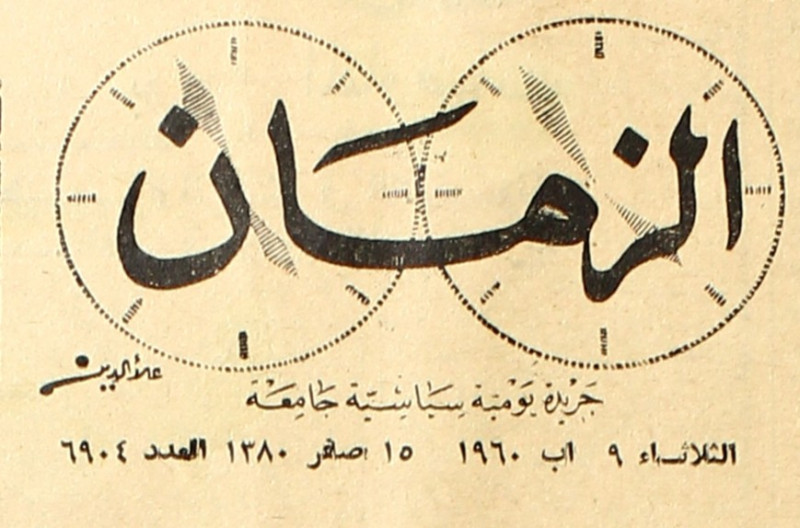 الزمان
علاءالدين
جَريدة يَوْمية سيَاسْيّة جَامِعَة
الثلاثاء ٩ اب ١٩٦٠ ١٥ صفر ١٣٨٠ العدد ٦٩٠٤